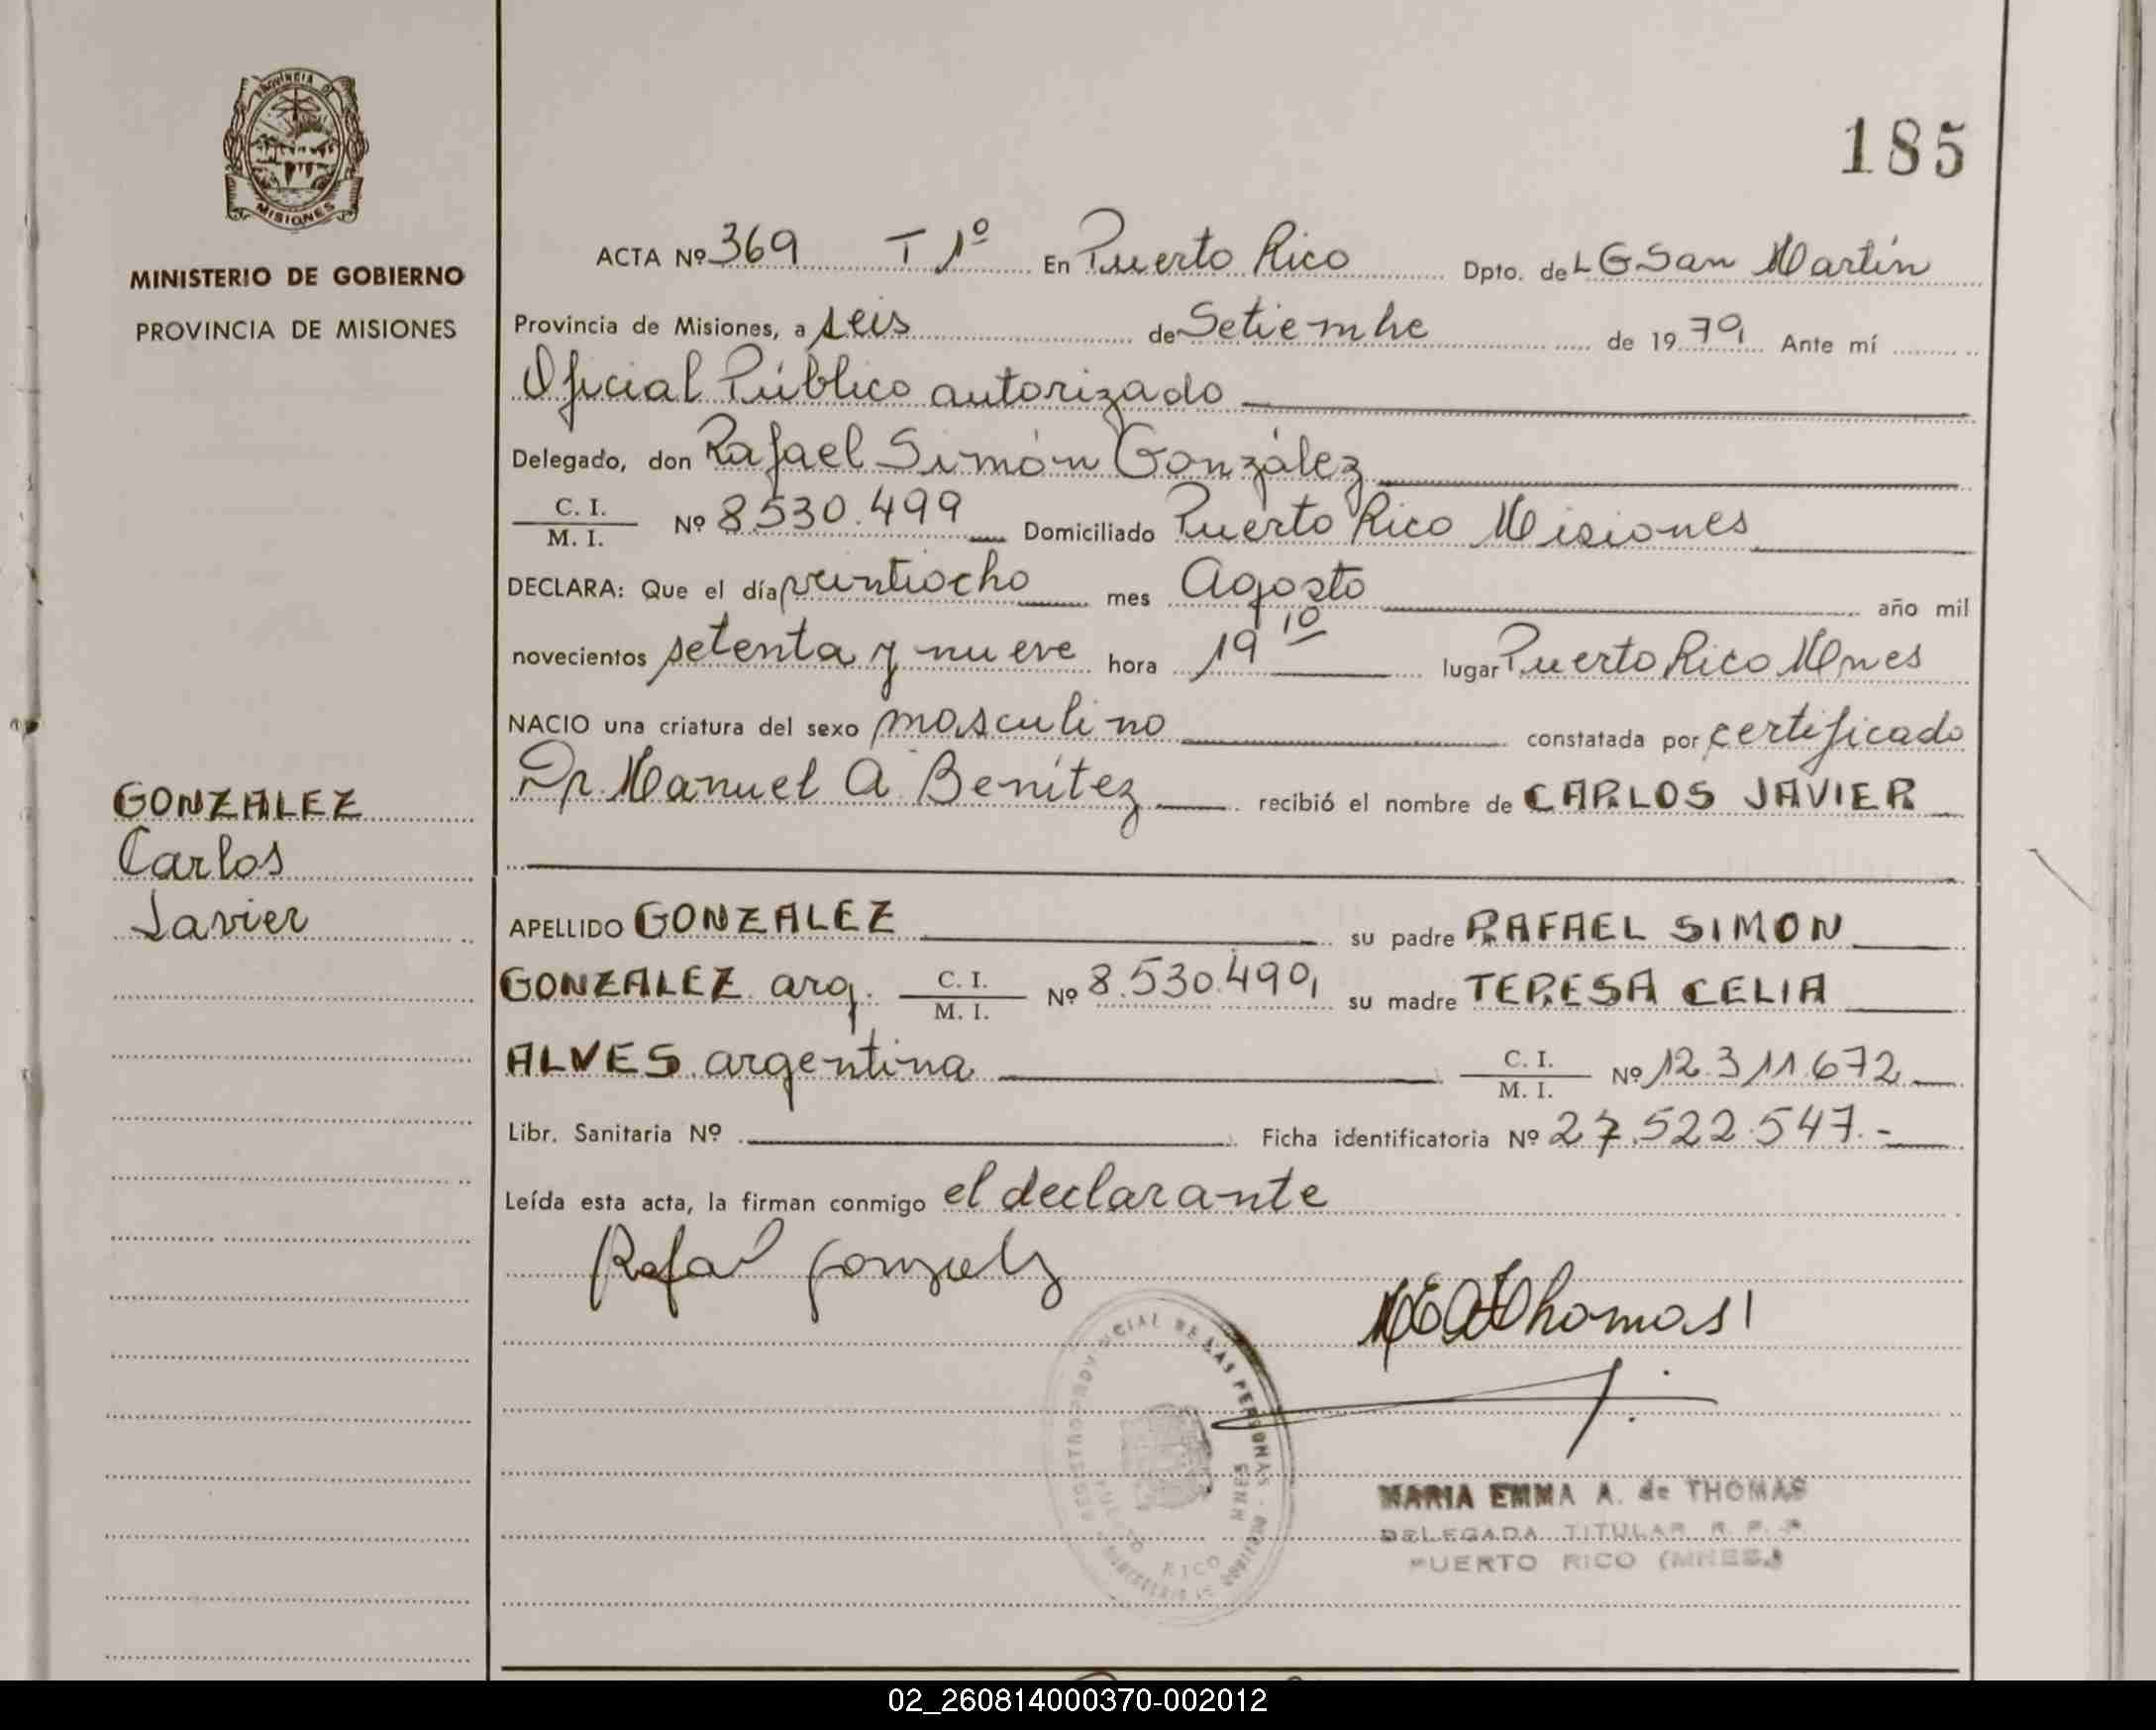 185
PROVINCIA DE
MISIONES
MINISTERIO DE GOBIERNO
PROVINCIA DE MISIONES
ACTA Nº 369 T 1º En Puerto Rico Dpto. de L G San Martín
Provincia de Misiones, a seis de Setiembre de 1979 Ante mí
Oficial Público autorizado
Delegado, don Rafael Simón González
C. I.
M. I. Nº 8.530.499 Domiciliado Puerto Rico Misiones
DECLARA: Que el día veintiocho mes Agosto año mil
novecientos setenta y nueve hora 19 10 lugar Puerto Rico Mnes
NACIO una criatura del sexo masculino constatada por certificado
Dr. Manuel A. Benítez recibió el nombre de CARLOS JAVIER
GONZALEZ
Carlos
Javier
APELLIDO GONZALEZ su padre RAFAEL SIMON
GONZALEZ arg. C. I.
M. I. Nº 8.530.499 su madre TERESA CELIA
ALVES argentina C. I.
M. I. Nº 12.311.672
Libr. Sanitaria Nº Ficha identificatoria Nº 27.522.547.-
Leída esta acta, la firman conmigo el declarante
Rafael Gonzalez
M E A Thomas
REGISTRO PROVINCIAL DE LAS PERSONAS
PUERTO RICO
MNES
MARIA EMMA A. de THOMAS
DELEGADA TITULAR R. P. P.
PUERTO RICO (MNES.)
02_260814000370-002012